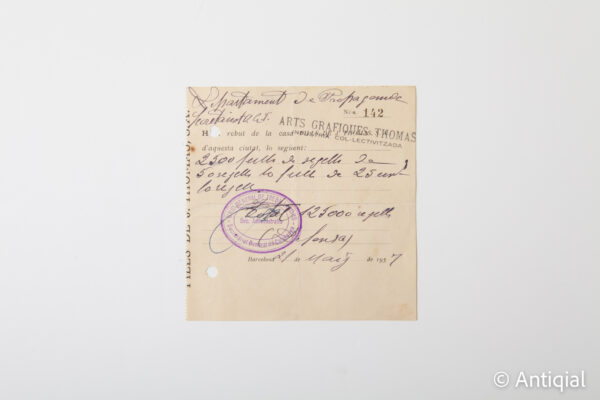 Departament de Propaganda
Secretariat G.S.
Núm. 142
ARTS GRAFIQUES THOMAS
INDUSTRIA COL·LECTIVITZADA
He rebut de la casa
d'aquesta ciutat, lo següent:
2500 fulls de segells de
50 segells lo full de 25 cent
lo segell
Total 125000 segells
Sec. Administrativa
Barcelona de Maig de 1937
FILLS DE J. THOMAS S.A.
© Antiqial